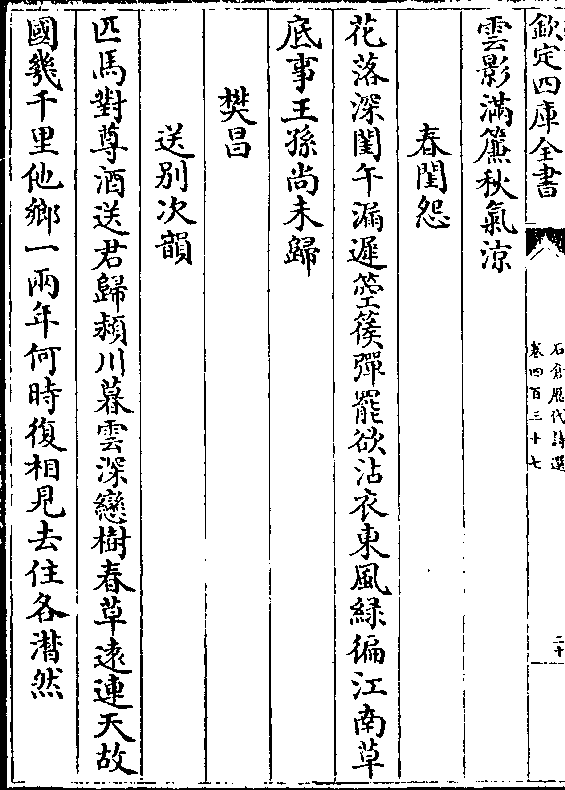 欽定四庫全書
石倉歷代詩選
卷四百三十七
二十
雲影滿簾秋氣涼
春閨怨
花落深閨午漏遲箜篌彈罷欲沾衣東風緑徧江南草
底事王孫尚未歸
樊昌
送别次韻
匹馬對尊酒送君歸潁川暮雲深戀樹春草遠連天故
國幾千里他鄉一兩年何時復相見去住各潸然